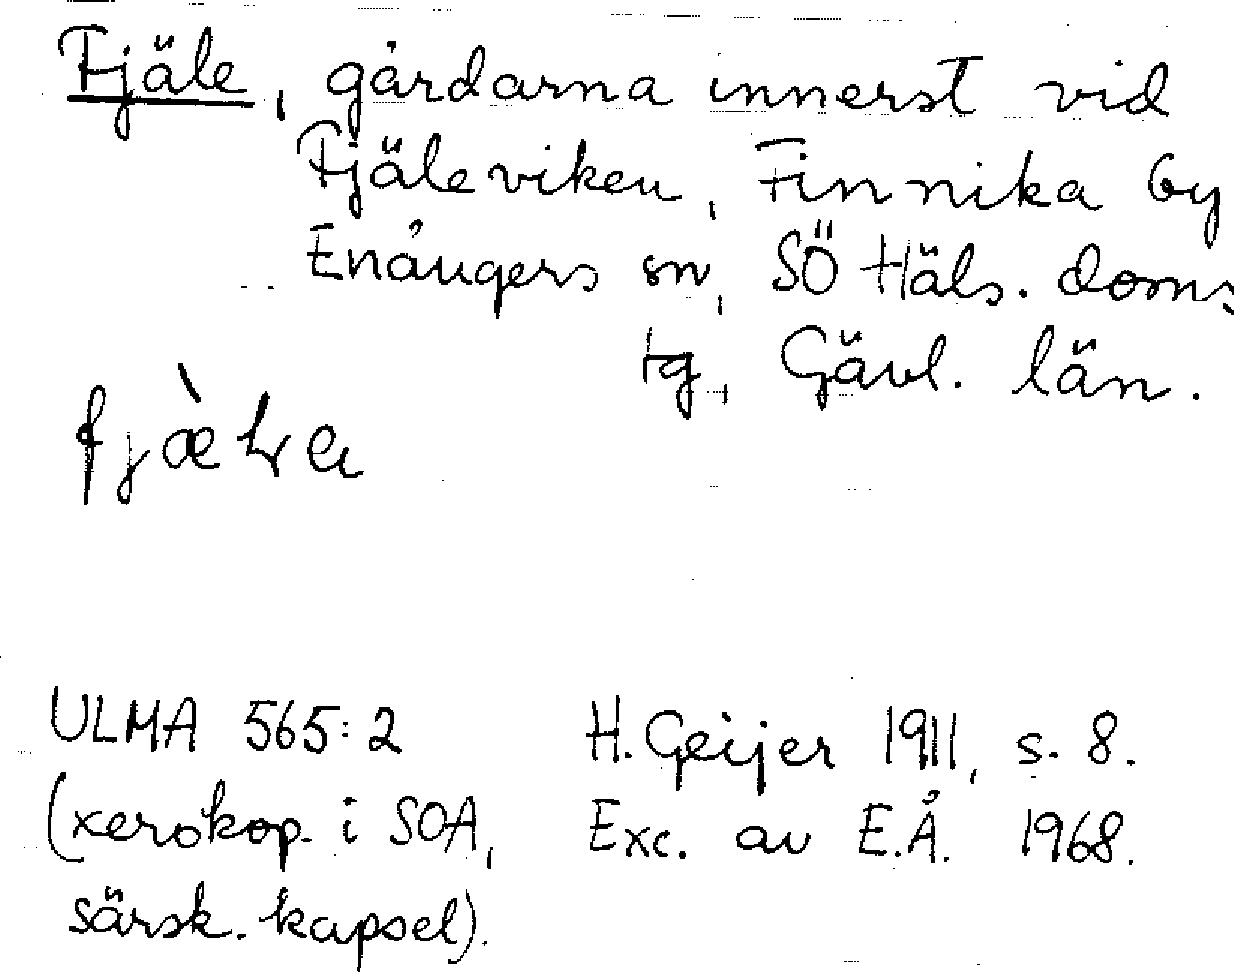 Fjäle, gårdarna innerst vid
Fjäleviken, Finnika by
Enångers sn, SÖ Häls. doms
tg, Gävl. län.
ULMA 565:2
(xerokop. i SOA,
särsk. kapsel).
H. Geijer 1911, s. 8.
Exc. av E.Å. 1968.